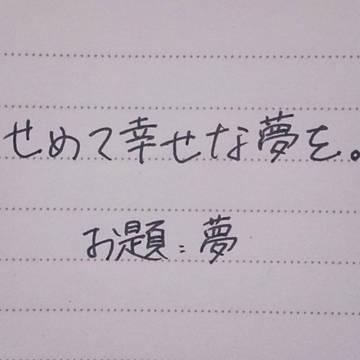 せめて幸せな夢を。
お題:夢